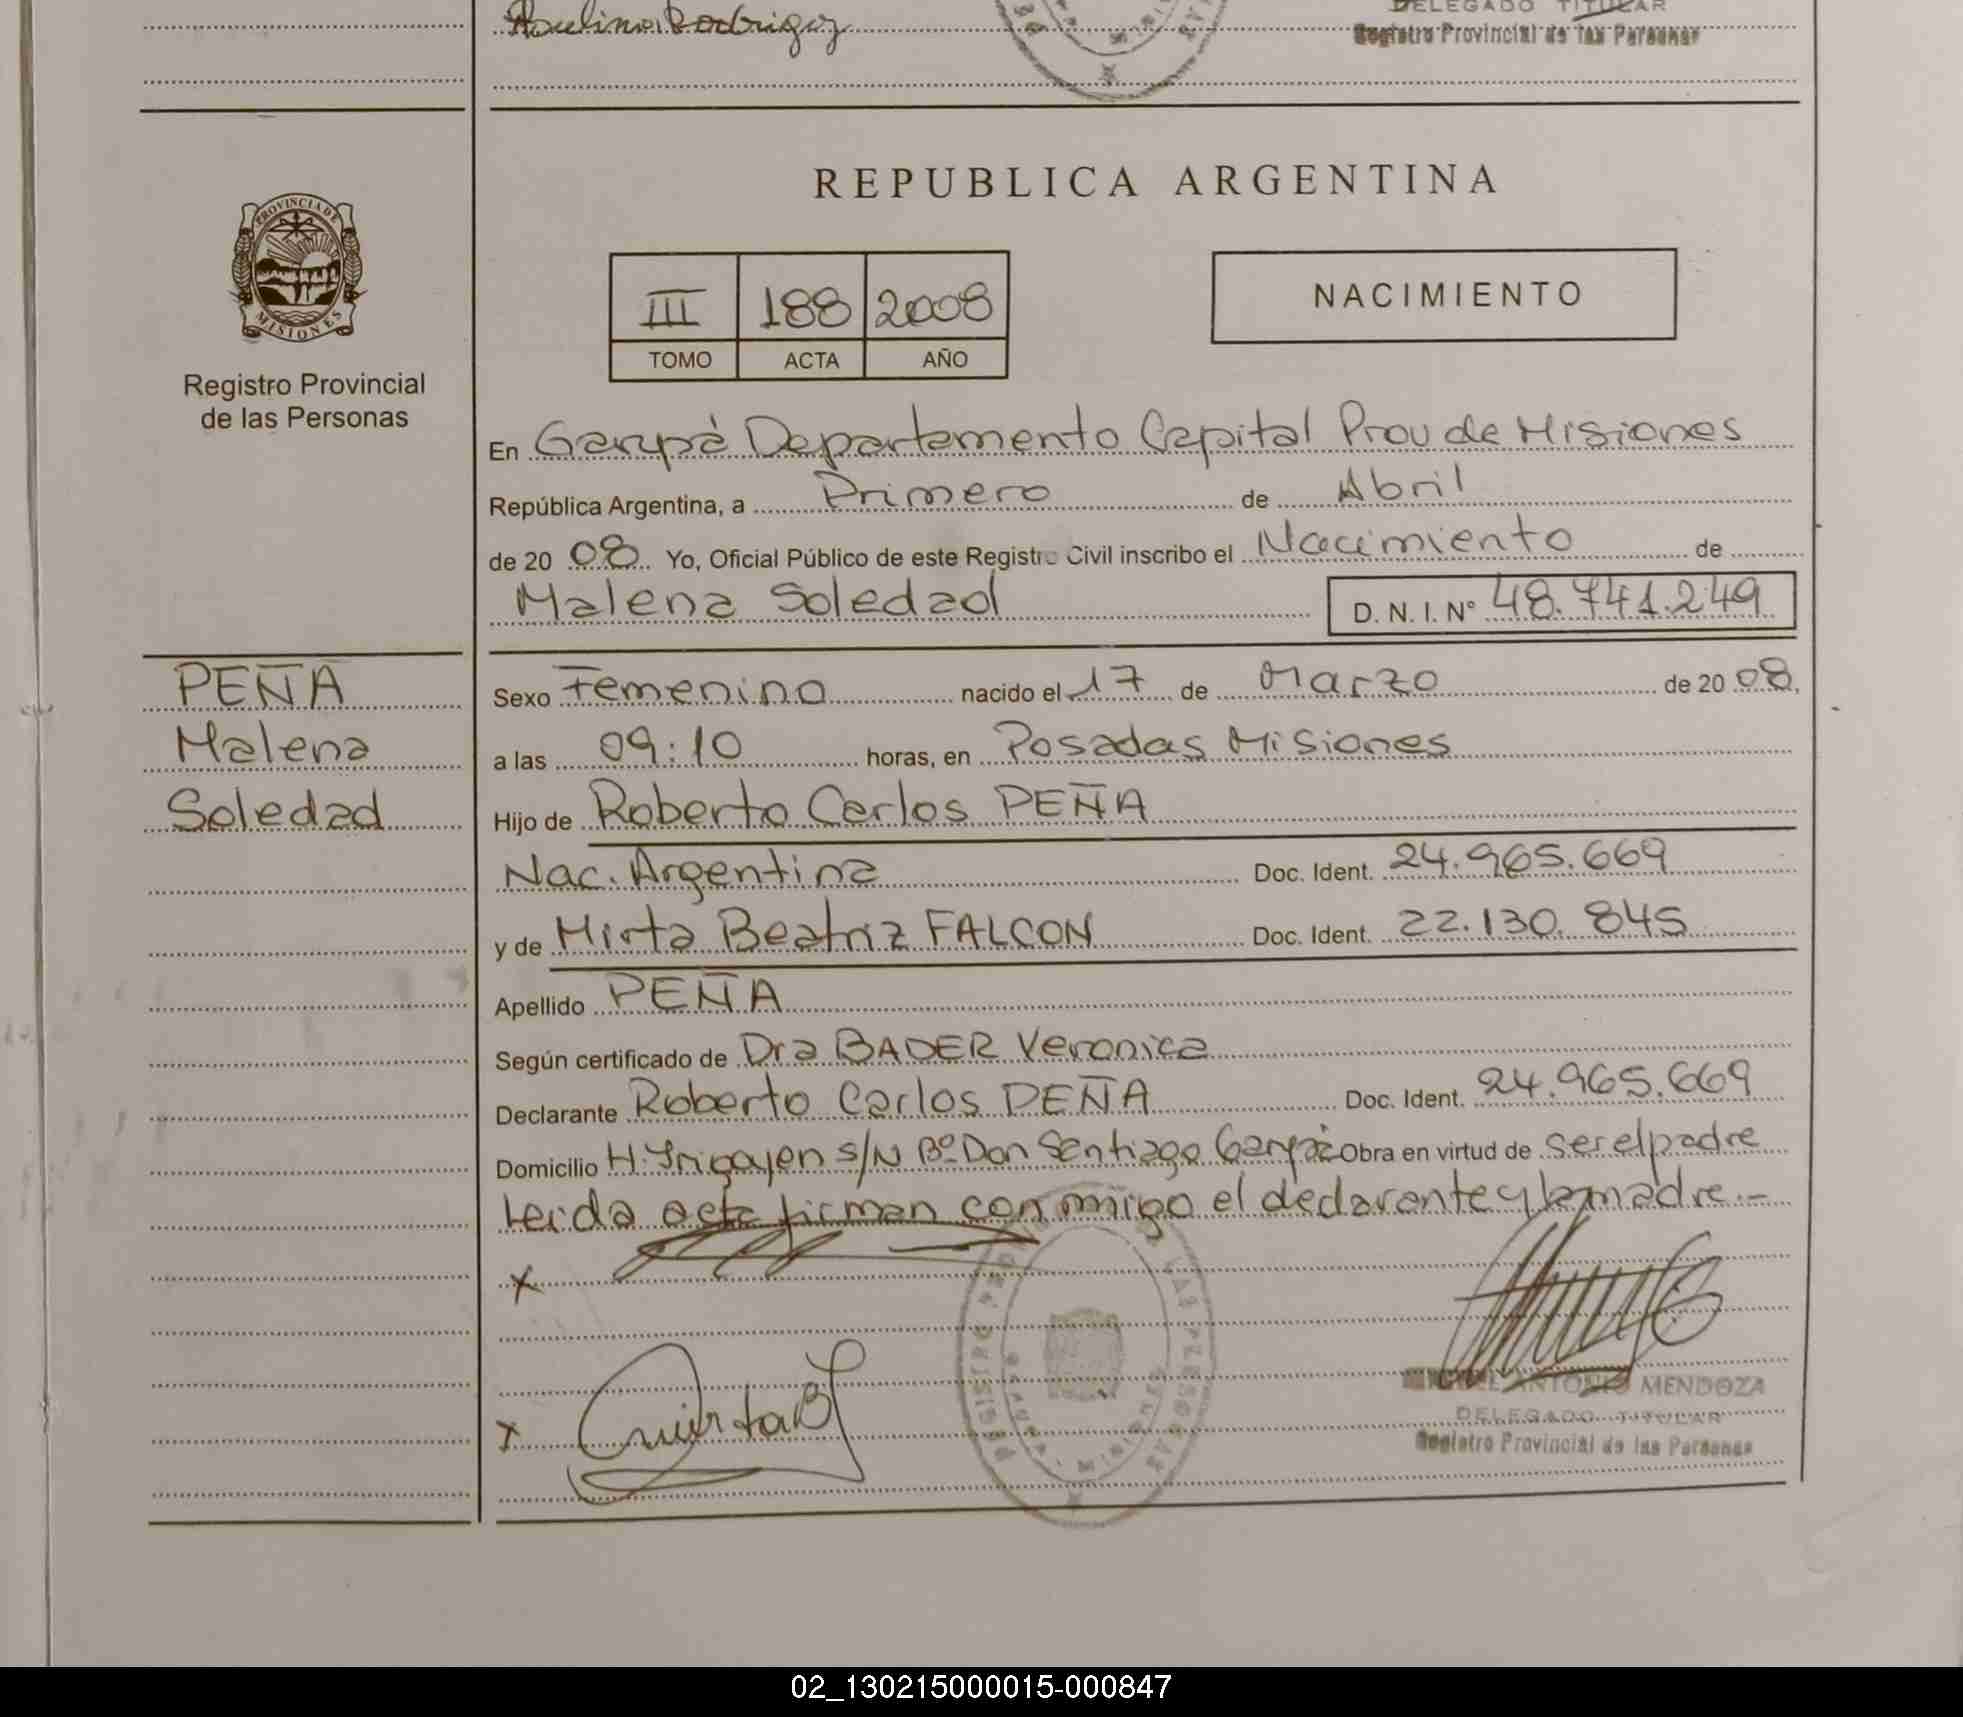 Paulino Rodriguez
DELEGADO TITULAR
Registro Provincial de las Personas
REPUBLICA ARGENTINA
PROVINCIA DE
MISIONES
Registro Provincial
de las Personas
III 188 2008
TOMO ACTA AÑO
NACIMIENTO
En Garupá Departamento Capital Prov de Misiones
República Argentina, a Primero de Abril
de 20 08 Yo, Oficial Público de este Registro Civil inscribo el Nacimiento de
Malena Soledad D. N. I. Nº 48.741.249
PEÑA
Malena
Soledad
Sexo Femenino nacido el 17 de Marzo de 20 08,
a las 09:10 horas, en Posadas Misiones
Hijo de Roberto Carlos PEÑA
Nac. Argentina Doc. Ident. 24.965.669
y de Mirta Beatriz FALCON Doc. Ident. 22.130.845
Apellido PEÑA
Según certificado de Dra BADER Veronica
Declarante Roberto Carlos PEÑA Doc. Ident. 24.965.669
Domicilio H. Yrigoyen S/N Bº Don Santiago Garupá Obra en virtud de ser el padre
Leída acta firman conmigo el declarante y la madre.-
X
X Mirta B
ANTONIO MENDOZA
DELEGADO TITULAR
Registro Provincial de las Personas
02_130215000015-000847